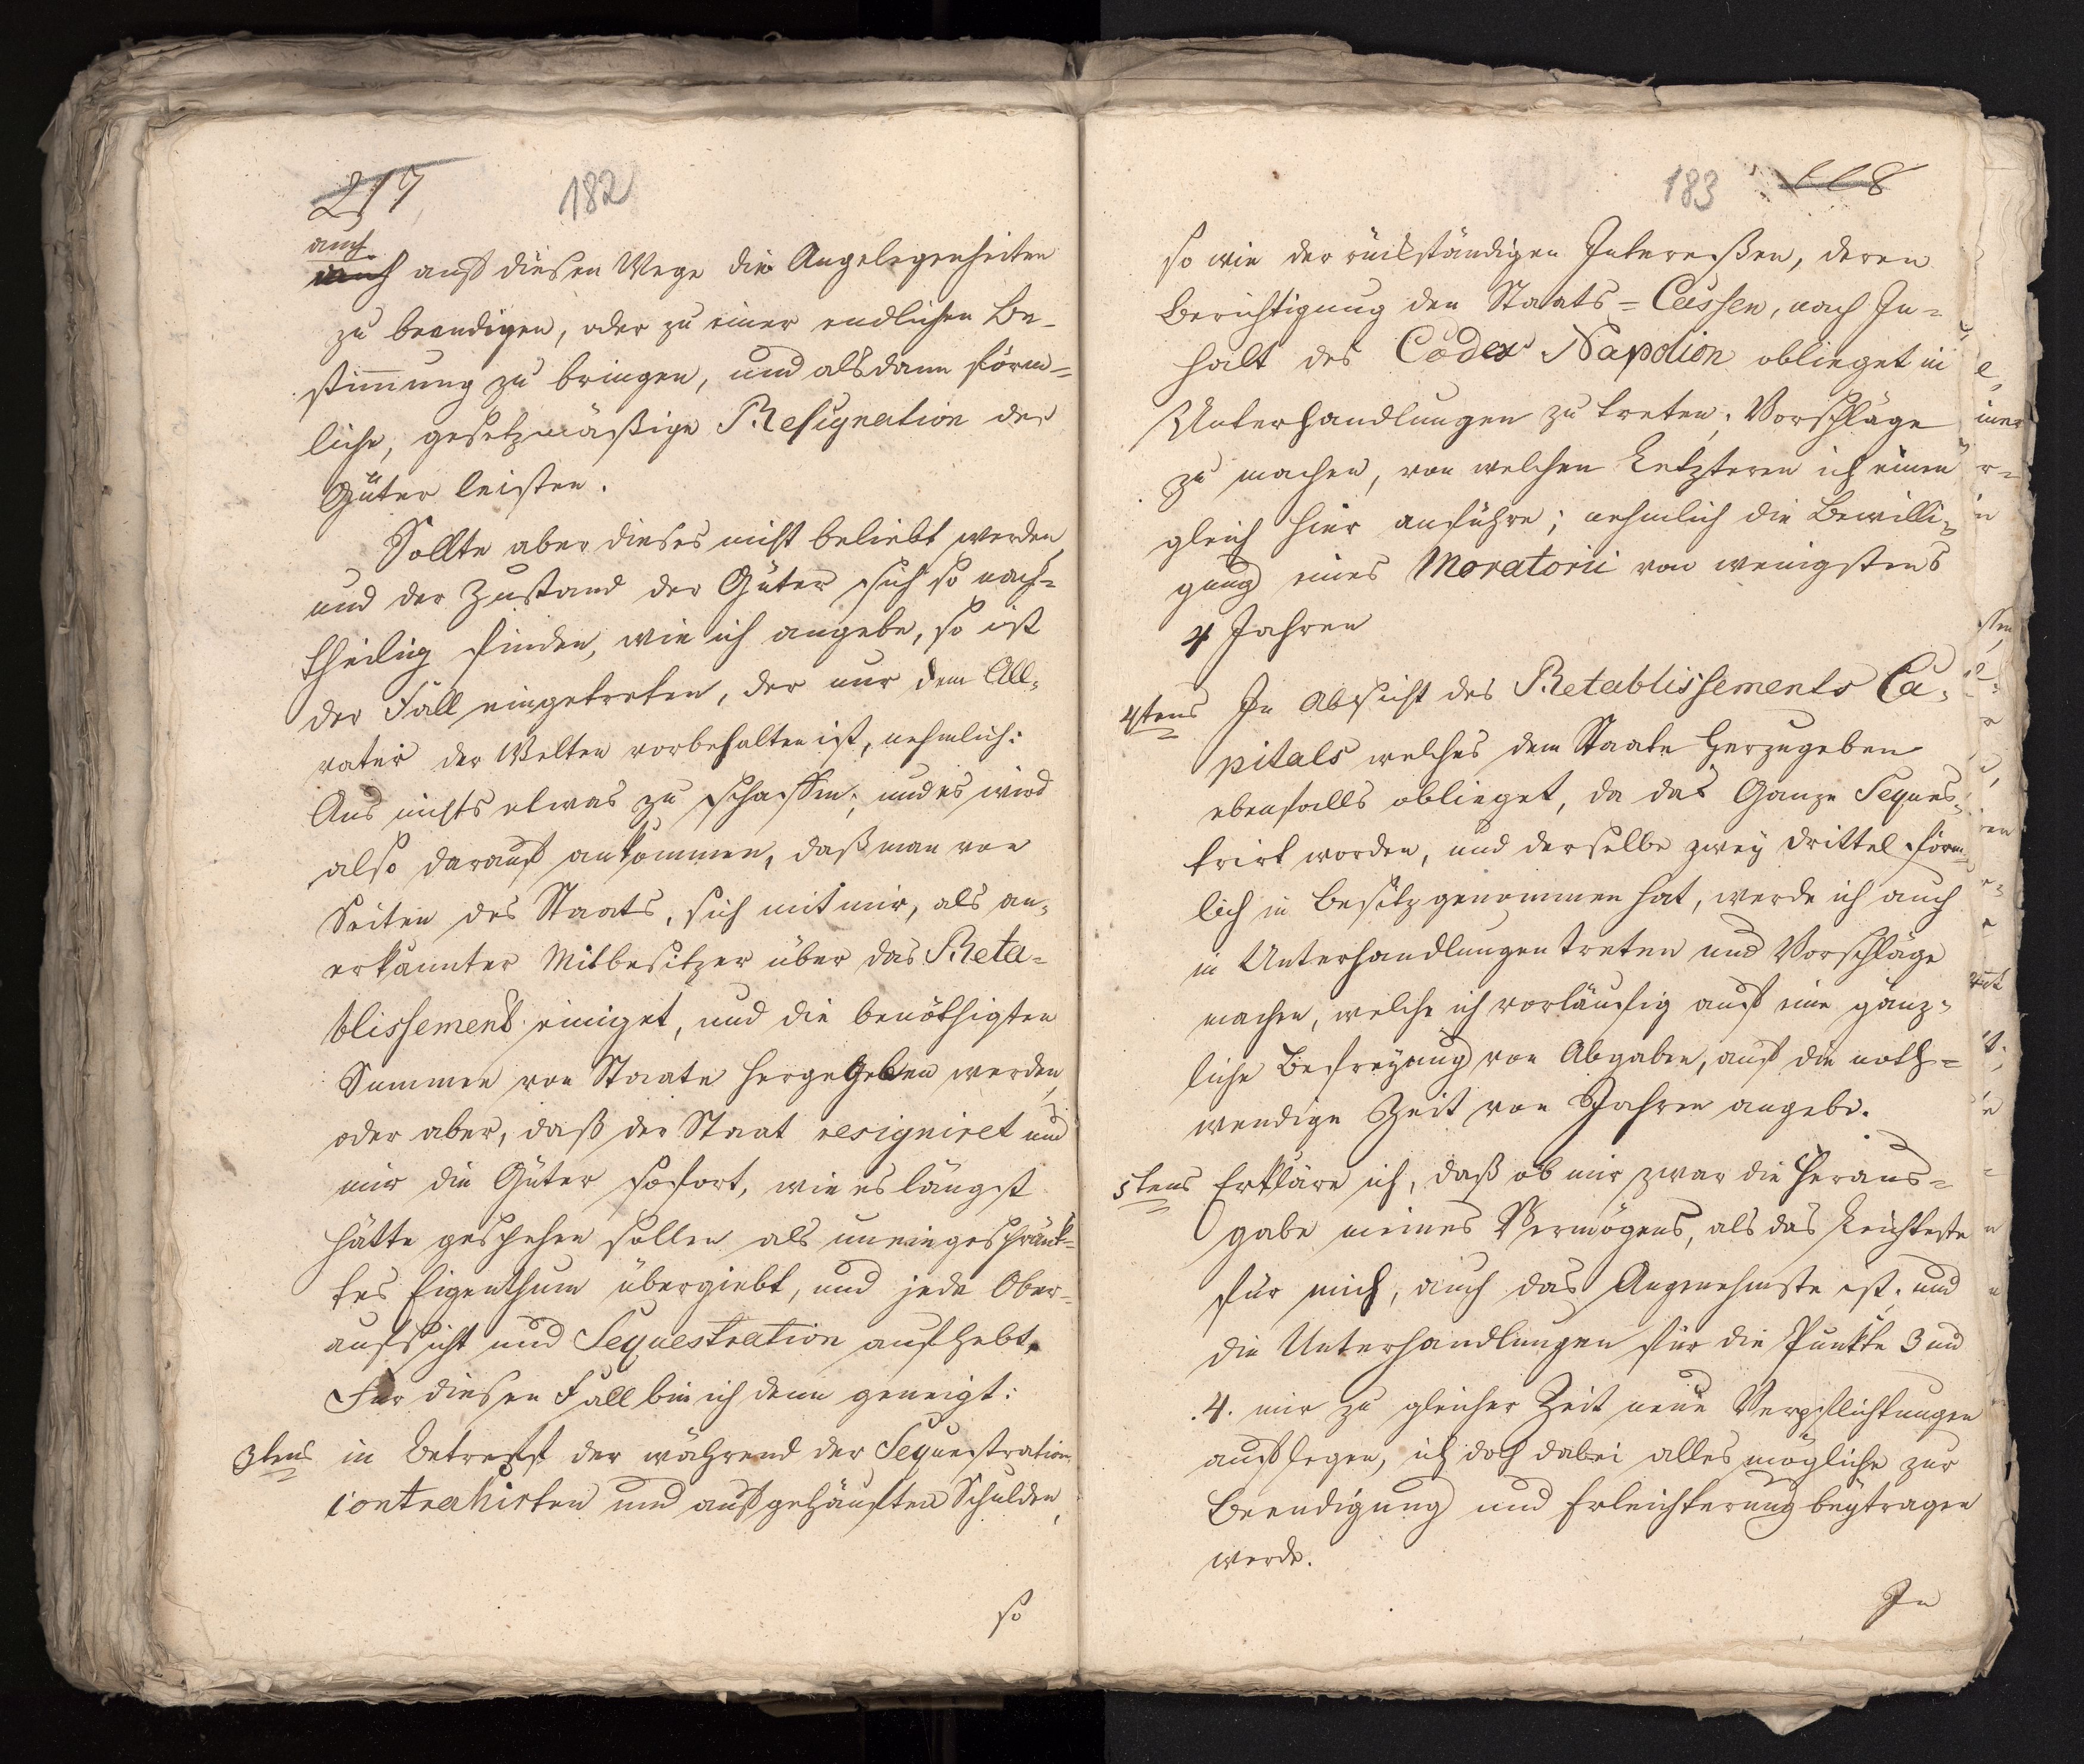 217 182
auch
auch auf diesen Wege die Angelegenheiten
zu beendigen, oder zu einer endlichen Be-
stimmung zu bringen, und alsdann förm=
liche, gesetzmäßige Resignation der
Güter leisten.
Sollte aber dieses nicht beliebt werden,
und der Zustand der Güter sich so nach=
theilig finden, wie ich angebe, so ist
der Fall eingetreten, der nur dem
der Welten vorbehalten ist, nehmlich:
Aus nichts etwas zu schaffen; und es wird
also darauf ankommen, daß man von
Seiten des Staats, sich mit mir, als an=
erkannter Mitbesitzer über das Reta=
blissement einiget, und die benöthigten
Summen von Staate hergegeben werden,
oder aber, daß der Staat resigniret und
mir die Güter sofort, wie es längst
hätte geschehen sollen als uneingeschränk=
tes Eigenthum übergiebt, und jede Ober=
aufsicht und Sequestration aufhebt.
Für diesen Fall bin ich denn geneigt:
3tens in Betreff der während der Sequestration
contrahirten und aufgehäuften Schulden,
so
183 218
so wie der rückständigen Interessen, deren
Berichtigung den Staats=Cassen, nach In=
halt des Codex Napolion oblieget in
Unterhandlungen zu treten; Vorschläge
zu machen, von welchen Letzteren ich einen
gleich hier anführe; nehmlich die Bewilli=
gung eines Moratorii von wenigstens
4 Jahren
4tens In Absicht des Retablissements Ca=
pitals welches dem Staate herzugeben
ebenfalls oblieget, da das Ganze Seques=
trirt worden, und derselbe zwey Drittel förm=
lich in Besitz genommen hat, werde ich auch
in Unterhandlungen treten und Vorschläge
machen, welche ich vorläufig auf eine gänz=
liche Befreyung von Abgaben, auf die noth=
wendige Zeit von Jahren angebe.
5tens Erkläre ich, daß ob mir zwar die Heraus=
gabe meines Vermögens, als das Leichteste
für mich, auch das Angenehmste ist, und
die Unterhandlungen für die Punkte 3 und
4. mir zu gleicher Zeit neue Verpflichtungen
auflegen, ich doch dabei alles mögliche zur
Beendigung und Erleichterung beytragen
werde.
In